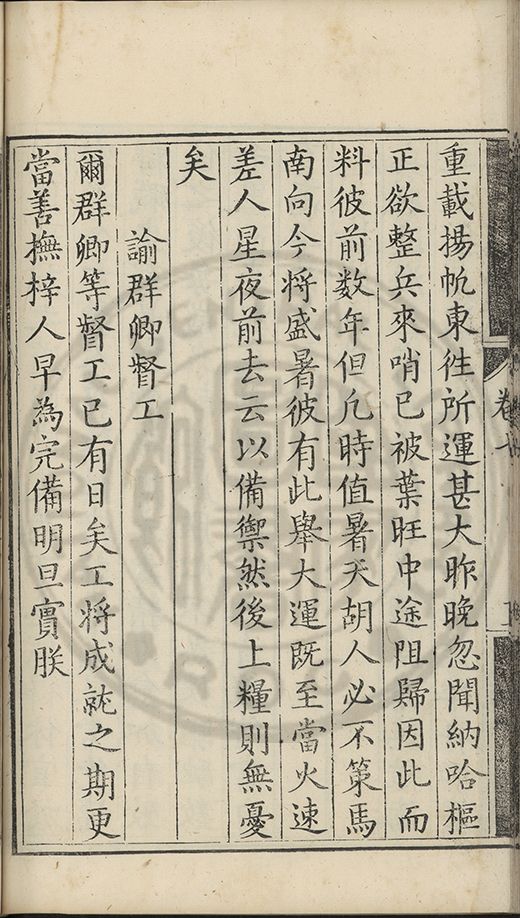 重載揚帆東徃所運甚大昨晚忽聞納哈樞
正欲整兵來哨已被葉旺中途阻歸因此而
料彼前数年但凢時值暑天胡人必不策馬
南向今將盛暑彼有此舉大運既至當火速
差人星夜前去云以備禦然後上糧則無憂
矣
諭群卿督工
爾群卿等督工已有日矣工将成就之期更
當善撫梓人早為完備明旦實朕